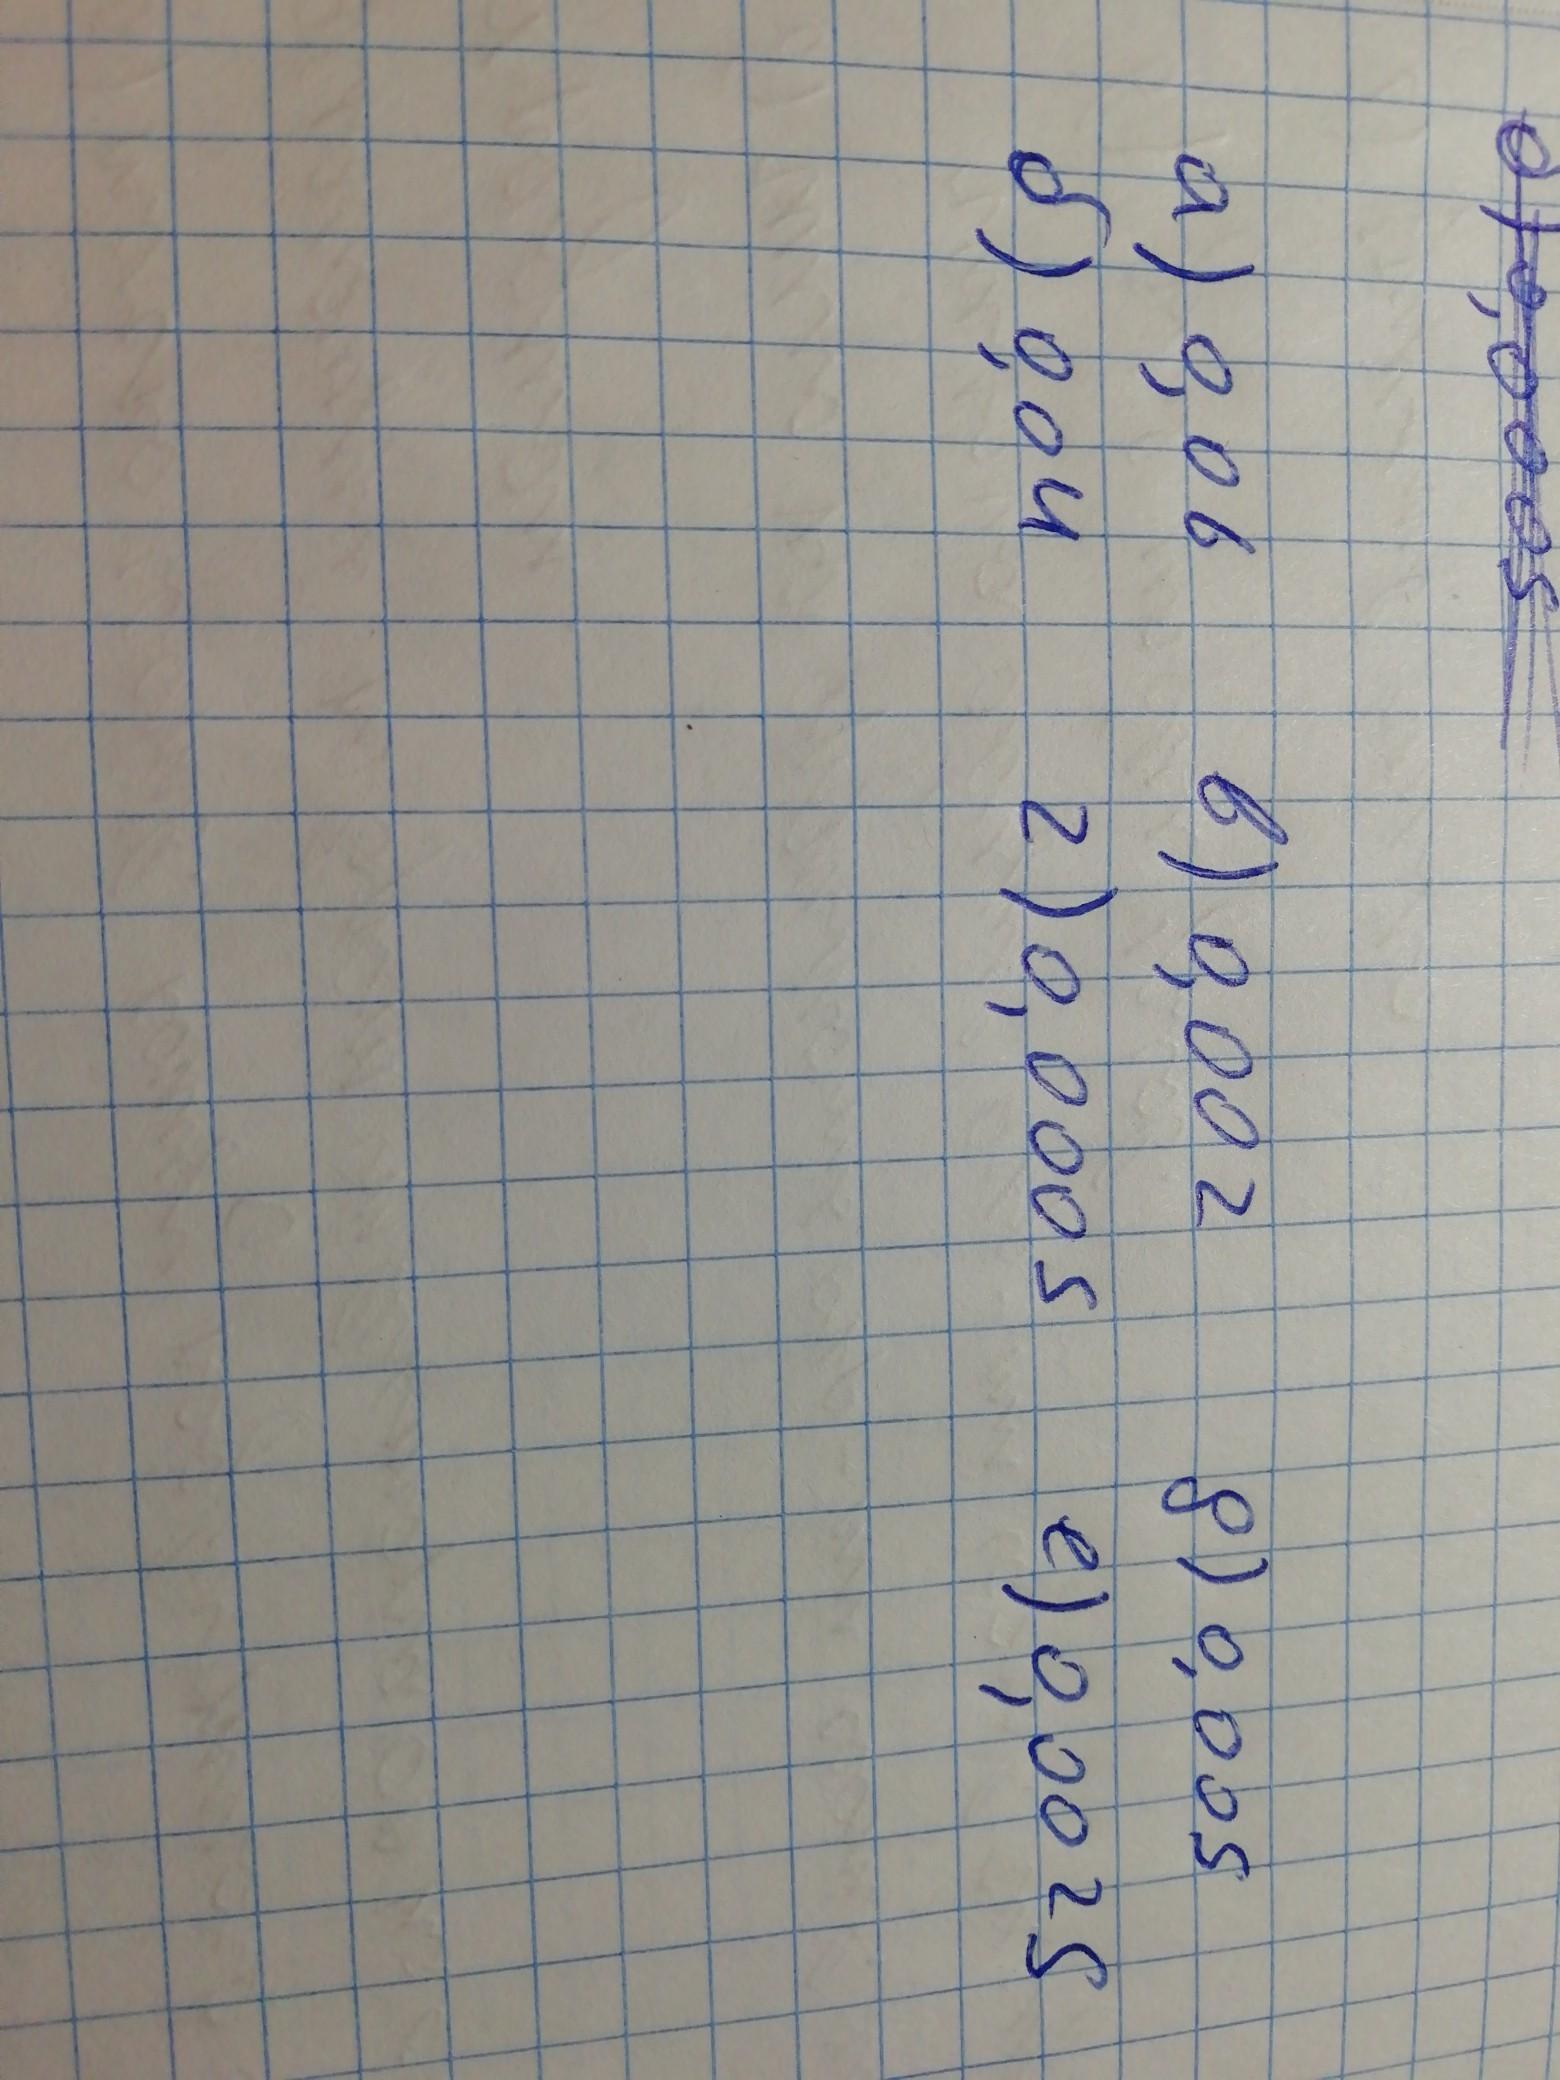 а) 0,06 в) 0,002 д) 0,005
б) 0,04 г) 0,0005 е) 0,0025